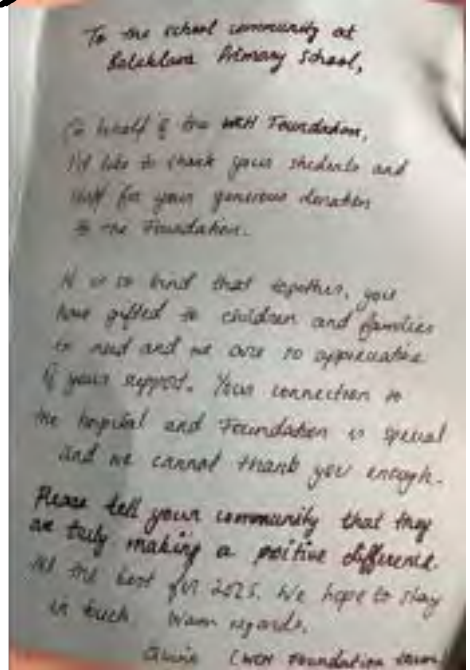 To the school community at
Balaklava Primary School,
On behalf of the WCH Foundation,
I'd like to thank your students and
staff for your generous donation
to the Foundation.
It is so kind that together, you
have gifted to children and families
in need and we are so appreciative
of your support. Your connection to
the hospital and Foundation is special
and we cannot thank you enough.
Please tell your community that they
are truly making a positive difference.
All the best for 2025. We hope to stay
in touch. Warm regards,
(WCH Foundation team)